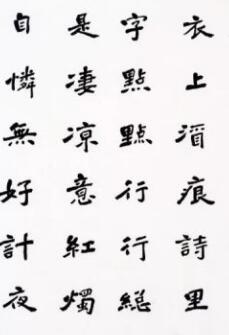 衣上㴘痕詩里
字點點行行總
是凄凉意紅燭
自憐無好計夜